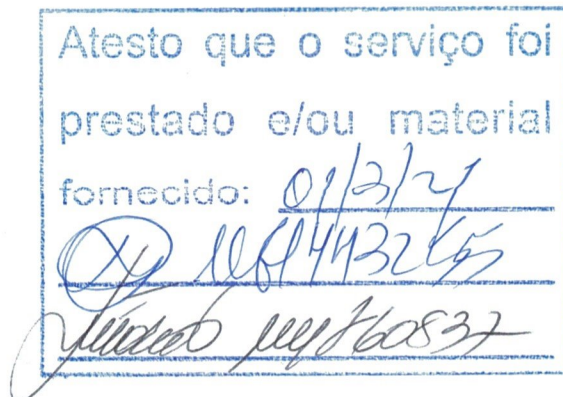 Atesto que o serviço foi
prestado e/ou material
fornecido: 01/3/21
760837